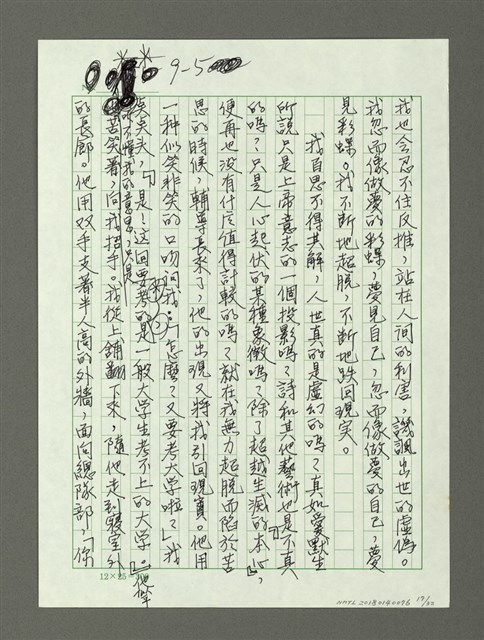 9-5
我也会忍不住反推,站在人间的利害,譏諷出世的虛偽。
我忽而像做夢的彩蝶,夢見自己,忽而像做夢的自己,夢
見彩蝶。我不断地起脱,不断地跌回現実。
我百思不得其解,人世真的是虛幻的嗎?真如愛默生
所說只是上帝意志的一個投影嗎?詩和其他藝術也是不真
的嗎?只是人心起伏的某種象徵嗎?除了超越生滅的「本心」,
便再也没有什庅值得計較的嗎?就在我無力起脱而陷於苦
思的時候,輔導長来了,他的出現又將我引回現實。他用
一种似笑非笑的口吻问我:「怎麼?又要考大学啦?」我
点点头,「是!这回要考的是一般大学生考不上的大学。」他举
听不懂我的意思,只是
苦笑着,向我招手。我從上舖翻下来,隨他走到寢室外
的長廊。他用双手支着半人高的外牆,面向總隊部,「你
12×25
NMTL 20180140096 19/22